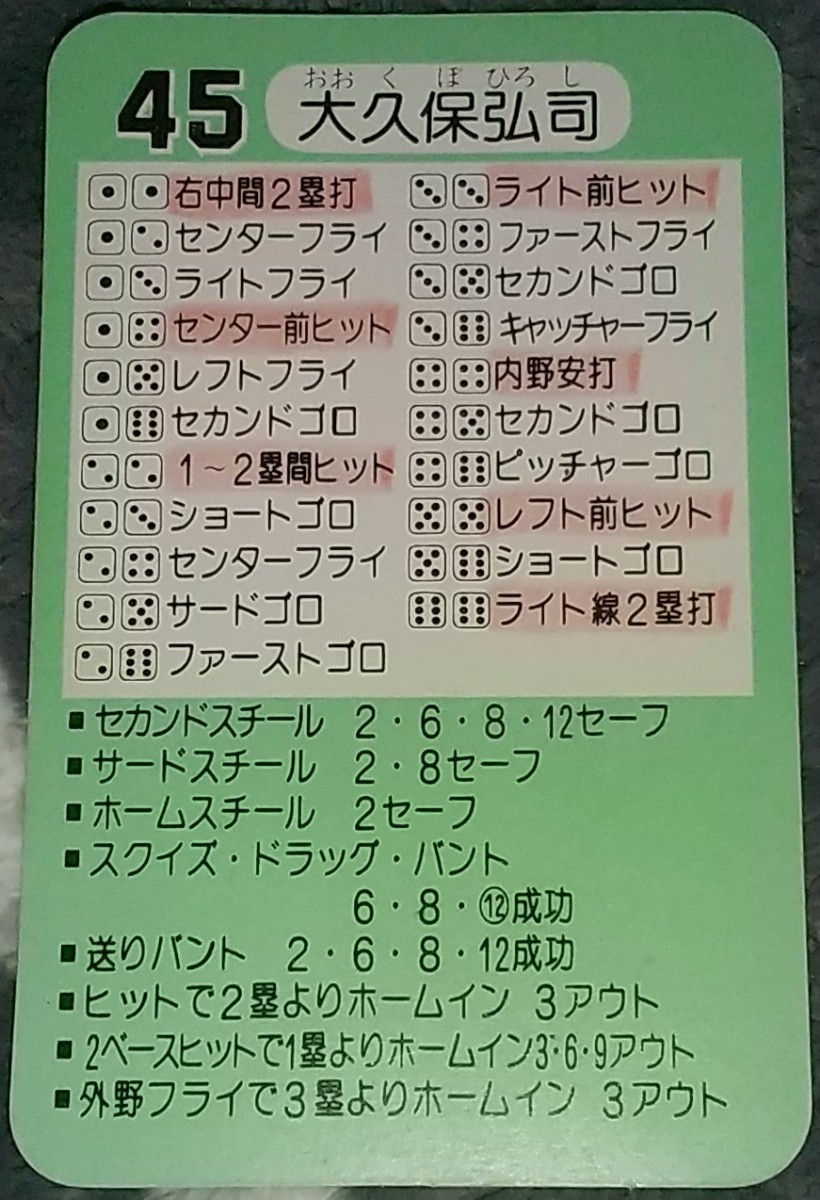 おおくぼひろし
45 大久保弘司
⚀⚀右中間2塁打
⚀⚁センターフライ
⚀⚂ライトフライ
⚀⚃センター前ヒット
⚀⚄レフトフライ
⚀⚅セカンドゴロ
⚁⚁1～2塁間ヒット
⚁⚂ショートゴロ
⚁⚃センターフライ
⚁⚄サードゴロ
⚁⚅ファーストゴロ
⚂⚂ライト前ヒット
⚂⚃ファーストフライ
⚂⚄セカンドゴロ
⚂⚅キャッチャーフライ
⚃⚃内野安打
⚃⚄セカンドゴロ
⚃⚅ピッチャーゴロ
⚄⚄レフト前ヒット
⚄⚅ショートゴロ
⚅⚅ライト線2塁打
■セカンドスチール 2・6・8・12セーフ
■サードスチール 2・8セーフ
■ホームスチール 2セーフ
■スクイズ・ドラッグ・バント
6・8・⑫成功
■送りバント 2・6・8・12成功
■ヒットで2塁よりホームイン 3アウト
■2ベースヒットで1塁よりホームイン3・6・9アウト
■外野フライで3塁よりホームイン 3アウト